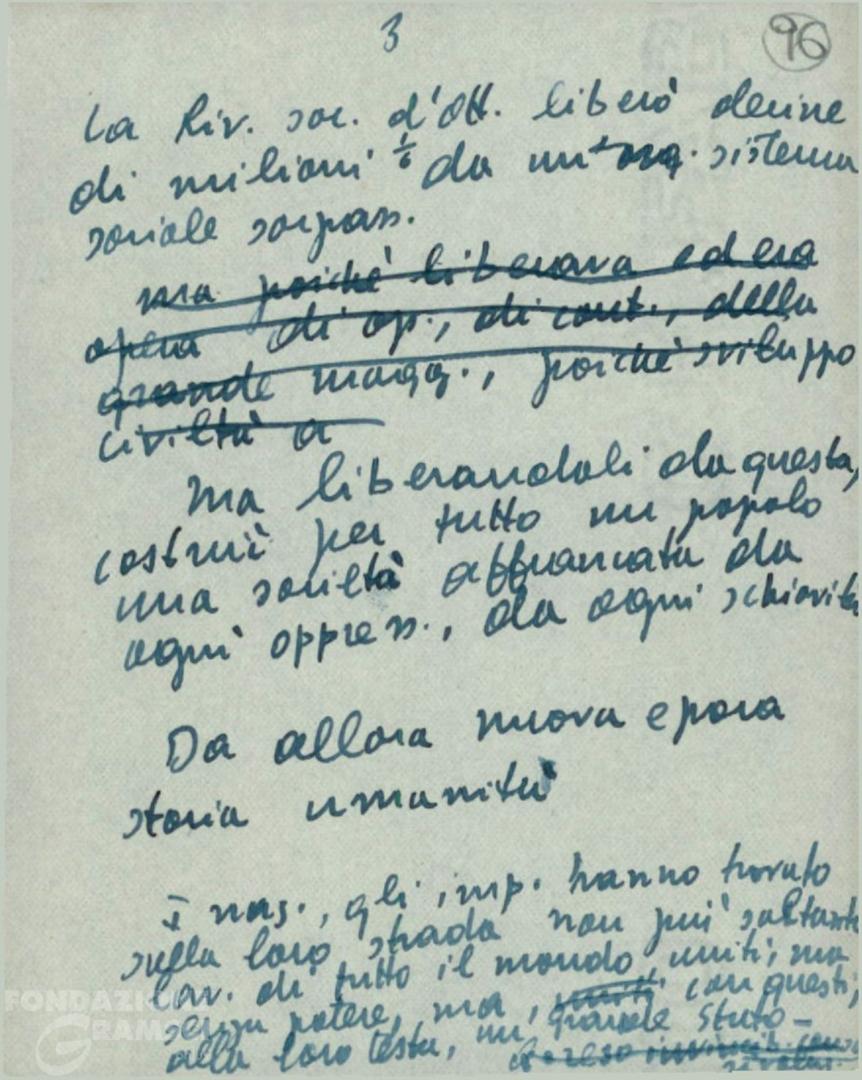 3
96
La Riv. soc. d'Ott. liberò decine
di milioni 1/6 da un sistema
sociale sorpass.
ma poiché liberava ed era
opera di op., di cont., della
grande magg., poiché sviluppo
civiltà a
Ma liberandoli da questa,
costruì per tutto un popolo
una società affrancata da
ogni oppress., da ogni schiavitù
Da allora nuova epoca
storia umanità
I naz., gli imp. hanno trovato
sulla loro strada non più soltanto
lav. di tutto il mondo uniti, ma
senza potere, ma, uniti con questi,
alla loro testa, un grande Stato
FONDAZIONE
GRAMSCI